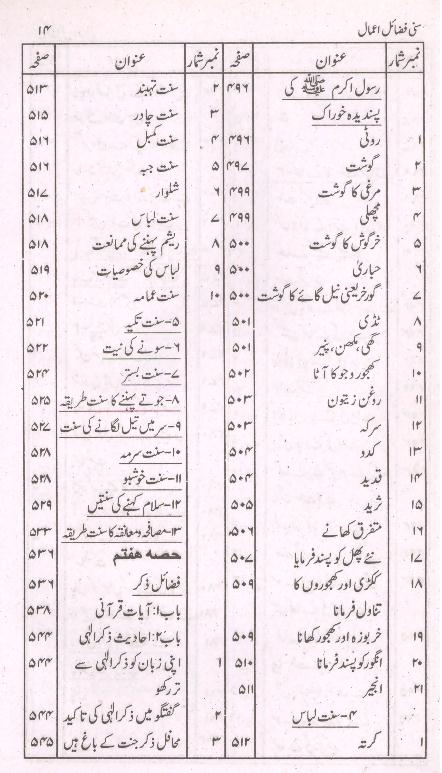 سنی فضائل اعمال ۱۴
نمبر شمار عنوان صفحہ
رسول اکرم ﷺ کی ۴۹۶
پسندیدہ خوراک
۱ روٹی ۴۹۶
۲ گوشت ۴۹۷
۳ مرغی کا گوشت ۴۹۹
۴ مچھلی ۴۹۹
۵ خرگوش کا گوشت ۵۰۰
۶ حباریٰ ۵۰۰
۷ گورخر یعنی نیل گائے کا گوشت ۵۰۰
۸ ٹڈی ۵۰۱
۹ گھی، مکھن، پنیر ۵۰۱
۱۰ کھجور و جو کا آٹا ۵۰۲
۱۱ روغن زیتون ۵۰۳
۱۲ سرکہ ۵۰۳
۱۳ کدو ۵۰۴
۱۴ قدید ۵۰۴
۱۵ ثرید ۵۰۵
۱۶ متفرق کھانے ۵۰۶
۱۷ نئے پھل کو پسند فرمایا ۵۰۷
۱۸ ککڑی اور کھجوروں کا ۵۰۹
تناول فرمانا
۱۹ خربوزہ اور کھجور کھانا ۵۰۹
۲۰ انگور کو پسند فرمانا ۵۱۰
۲۱ انجیر ۵۱۱
۴-سنت لباس
۱ کرتہ ۵۱۲
نمبر شمار عنوان صفحہ
۲ سنت تہبند ۵۱۳
۳ سنت چادر ۵۱۵
۴ سنت کمبل ۵۱۶
۵ سنت جبہ ۵۱۶
۶ شلوار ۵۱۷
۷ سنت لباس ۵۱۸
۸ ریشم پہننے کی ممانعت ۵۱۸
۹ لباس کی خصوصیات ۵۱۹
۱۰ سنت عمامہ ۵۲۰
۵-سنت تکیہ ۵۲۱
۶-سونے کی نیت ۵۲۲
۷-سنت بستر ۵۲۴
۸-جوتے پہننے کا سنت طریقہ ۵۲۵
۹-سر میں تیل لگانے کی سنت ۵۲۷
۱۰-سنت سرمہ ۵۲۸
۱۱-سنت خوشبو ۵۲۸
۱۲-سلام کہنے کی سنتیں ۵۲۹
۱۳-مصافحہ و معانقہ کا سنت طریقہ ۵۳۳
حصہ ہفتم ۵۳۶
فضائل ذکر ۵۳۶
باب۱: آیات قرآنی ۵۳۸
باب۲: احادیث ذکر الٰہی ۵۴۴
۱ اپنی زبان کو ذکر الٰہی سے ۵۴۴
تر رکھو
۲ گفتگو میں ذکر الٰہی کی تاکید ۵۴۴
۳ محافل ذکر جنت کے باغ ہیں ۵۴۵